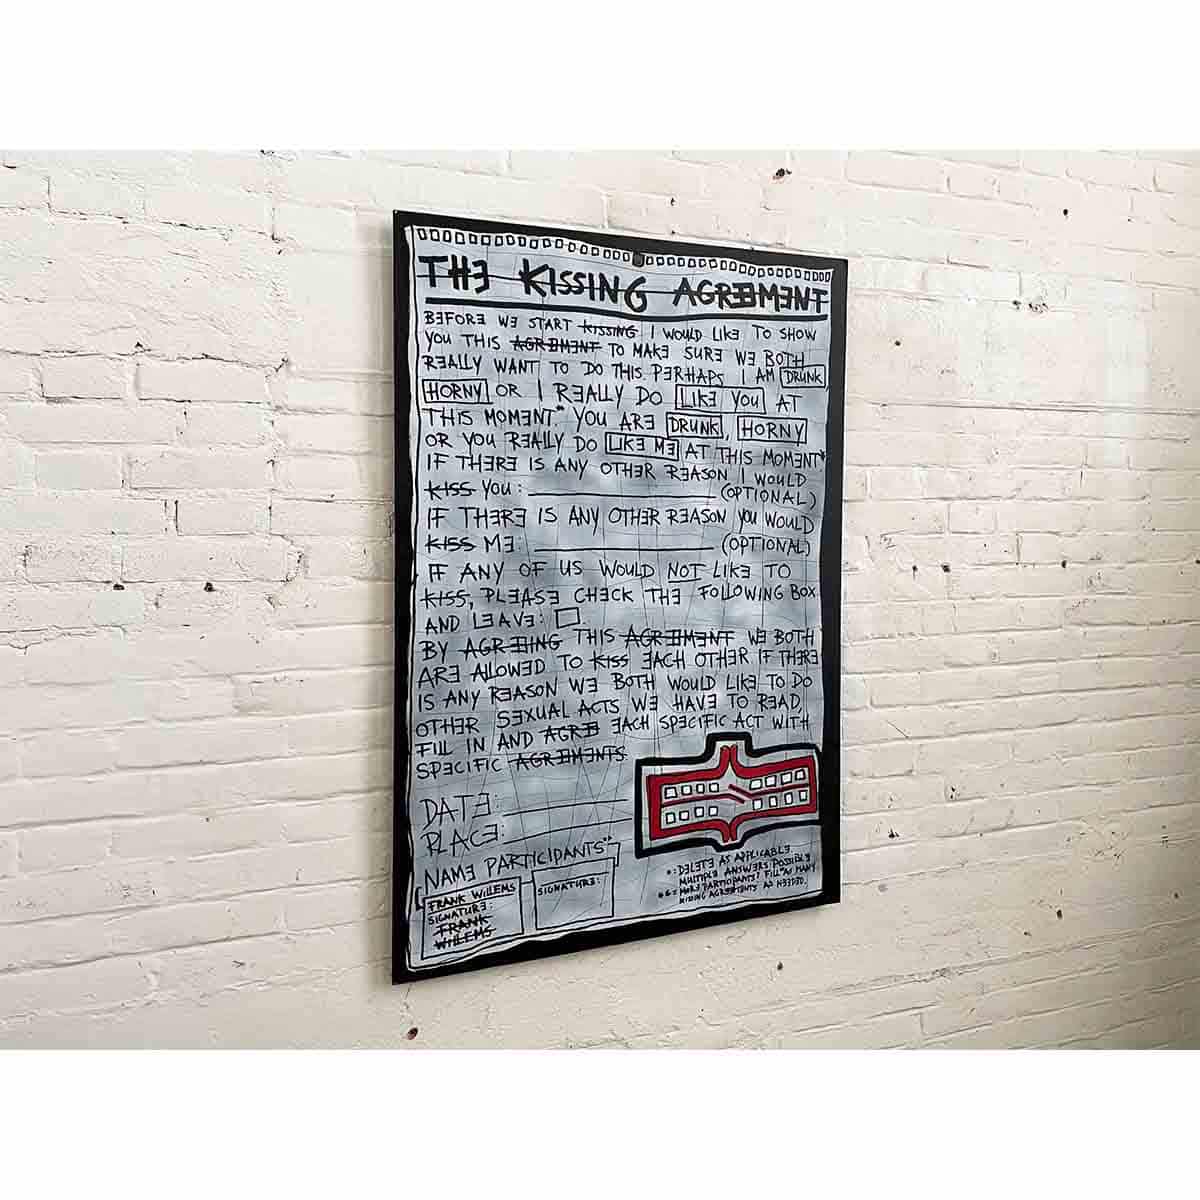 THE KISSING AGREEMENT
BEFORE WE START KISSING I WOULD LIKE TO SHOW
YOU THIS AGREEMENT TO MAKE SURE WE BOTH
REALLY WANT TO DO THIS PERHAPS I AM DRUNK
HORNY OR I REALLY DO LIKE YOU AT
THIS MOMENT* YOU ARE DRUNK, HORNY
OR YOU REALLY DO LIKE ME AT THIS MOMENT*
IF THERE IS ANY OTHER REASON I WOULD
KISS YOU: (OPTIONAL)
IF THERE IS ANY OTHER REASON YOU WOULD
KISS ME: (OPTIONAL)
IF ANY OF US WOULD NOT LIKE TO
KISS, PLEASE CHECK THE FOLLOWING BOX
AND LEAVE:
BY AGREEING THIS AGREEMENT WE BOTH
ARE ALLOWED TO KISS EACH OTHER IF THERE
IS ANY REASON WE BOTH WOULD LIKE TO DO
OTHER SEXUAL ACTS WE HAVE TO READ,
FILL IN AND AGREE EACH SPECIFIC ACT WITH
SPECIFIC AGREEMENTS.
DATE:
PLACE:
NAME PARTICIPANTS**
FRANK WILLEMS
SIGNATURE:
FRANK
WILLEMS
SIGNATURE:
*: DELETE AS APPLICABLE
MULTIPLE ANSWERS POSSIBLY
**: MORE PARTICIPANTS? FILL AS MANY
KISSING AGREEMENTS AS NEEDED.